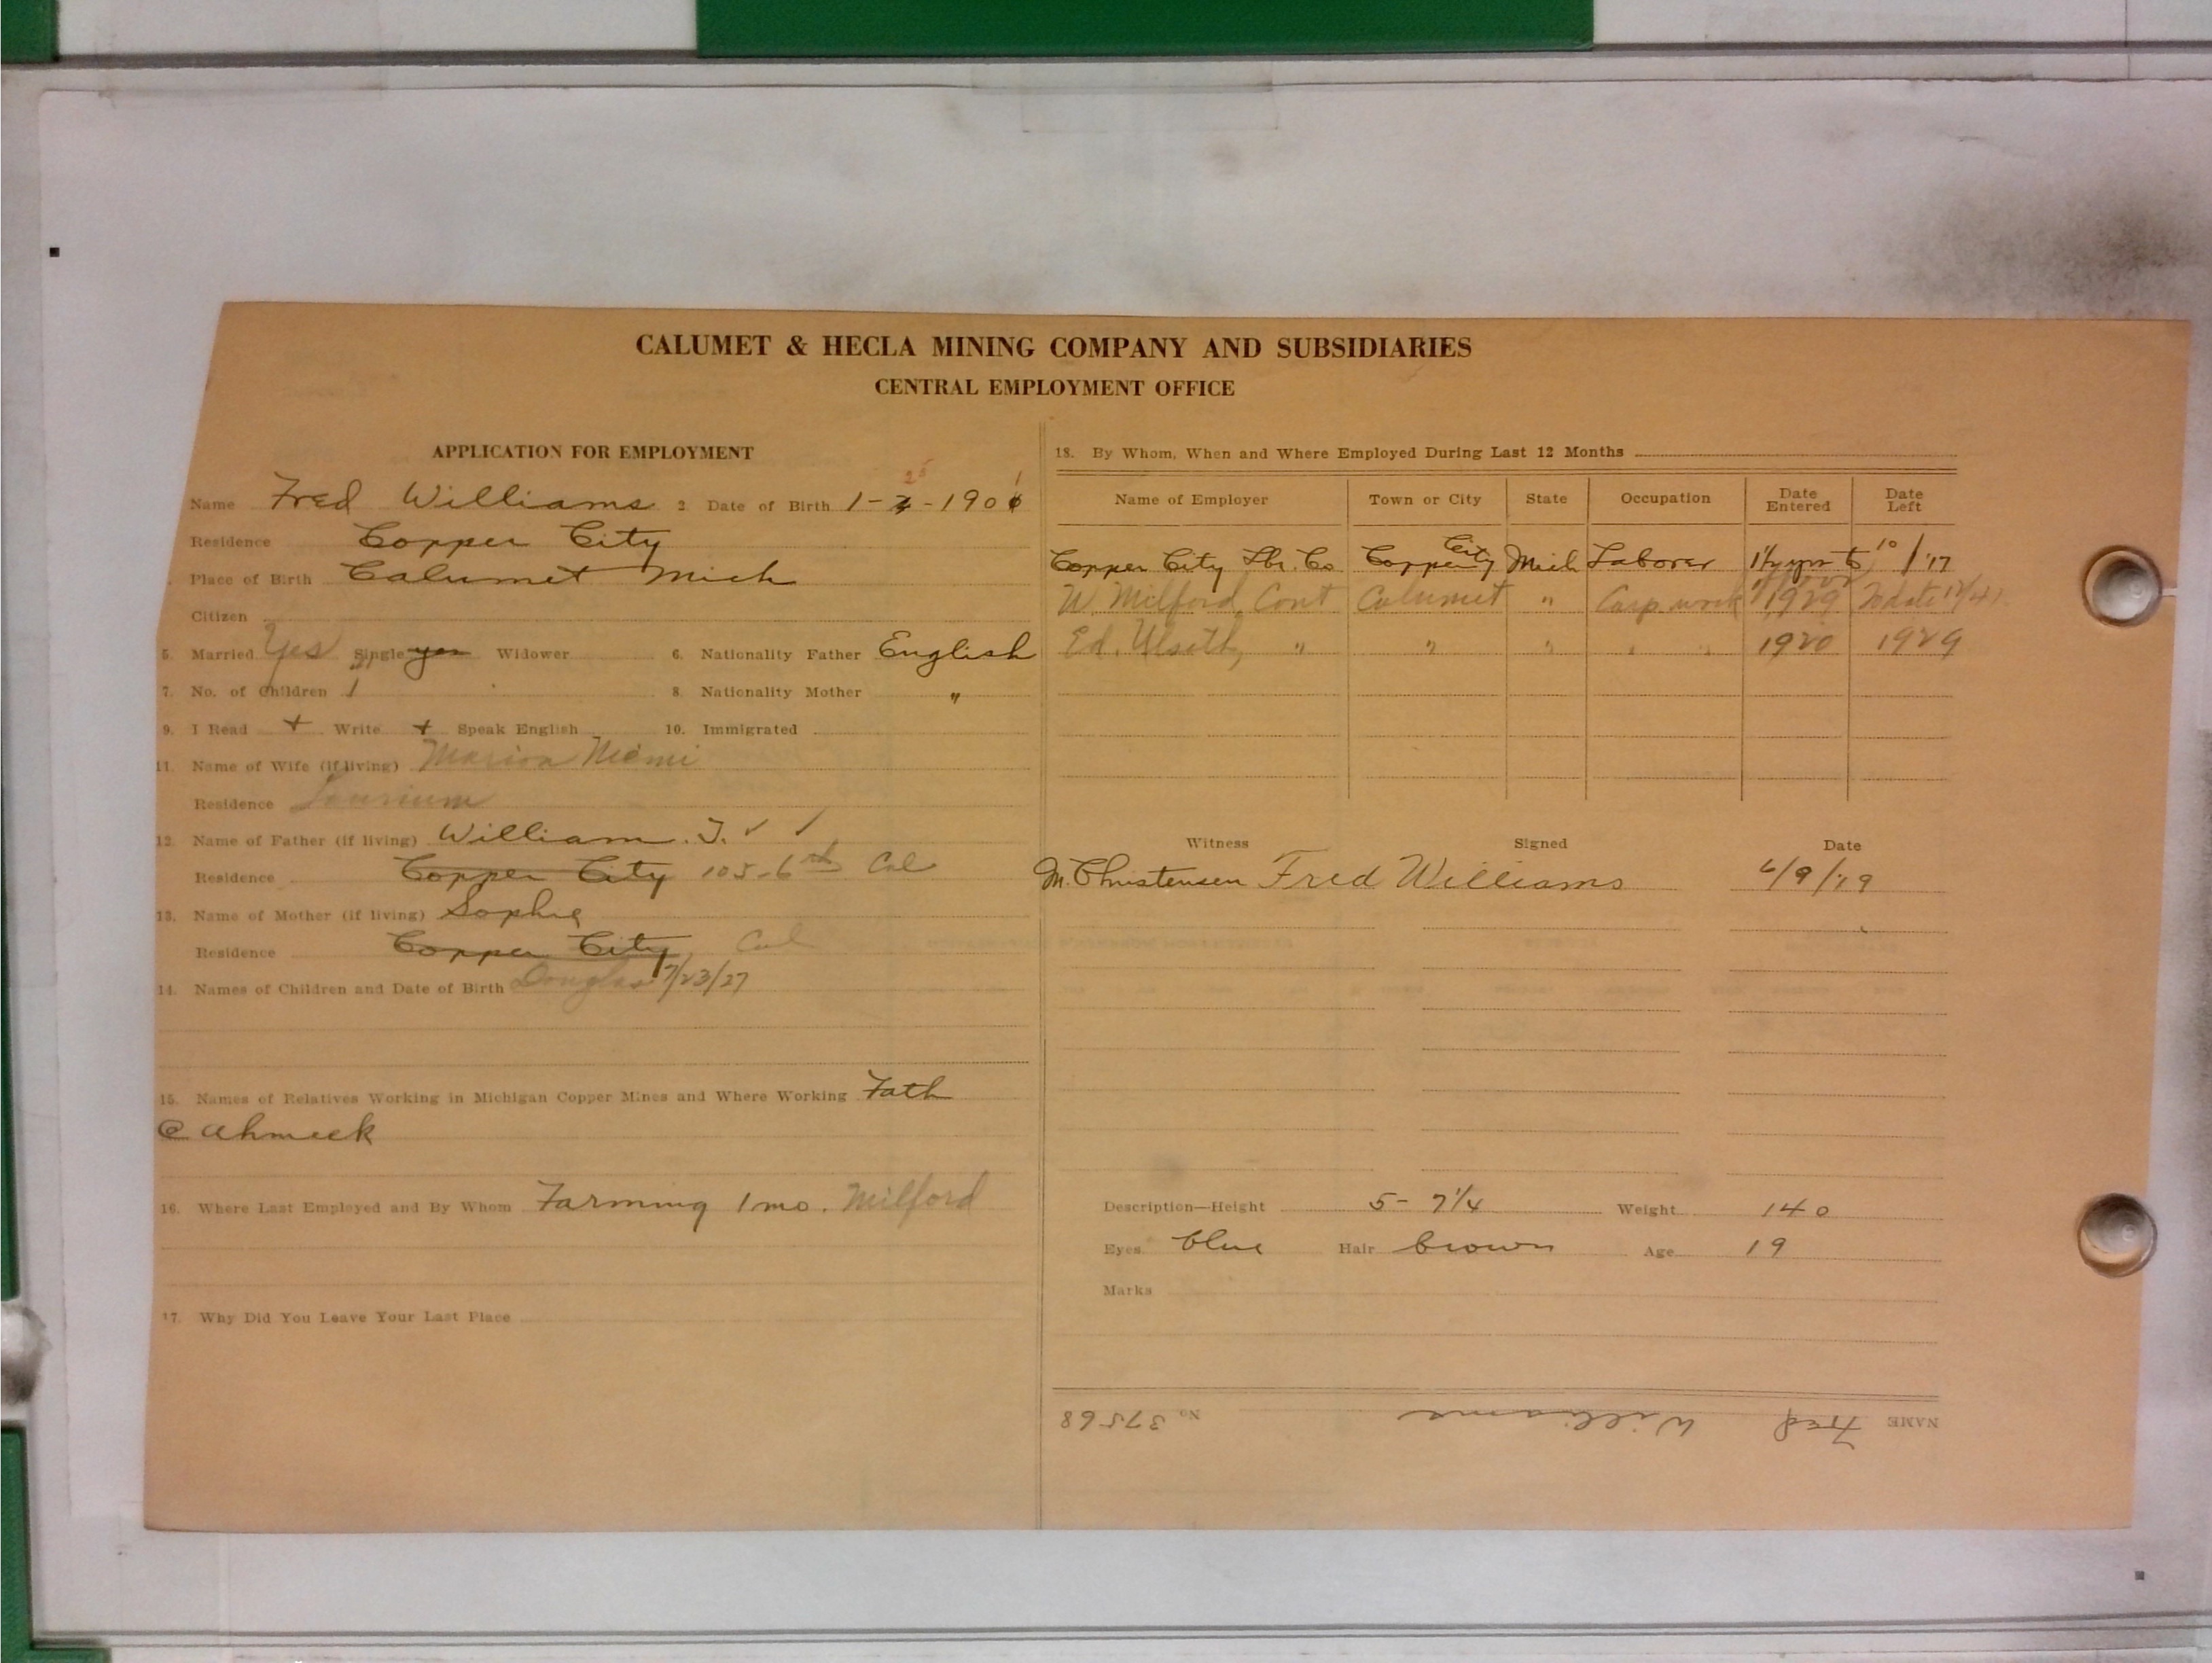 CALUMET & HECLA MINING COMPANY AND SUBSIDIARIES
CENTRAL EMPLOYMENT OFFICE
APPLICATION FOR EMPLOYMENT
Name Fred Williams 2 Date of Birth 1-25-1901
Residence Copper City
Place of Birth Calumet Mich
Citizen
5. Married Yes Single yes Widower 6. Nationality Father English
7. No. of Children 1 8. Nationality Mother "
9. I Read + Write + Speak English 10. Immigrated
11. Name of Wife (if living) Marion Niemi
Residence Laurium
12. Name of Father (if living) William. J.
Residence Copper City 105-6th Cal
13. Name of Mother (if living) Sophie
Residence Copper City Cal
14. Names of Children and Date of Birth Douglas 7/23/27
15. Names of Relatives Working in Michigan Copper Mines and Where Working Fath
@ Ahmeek
16. Where Last Employed and By Whom Farming 1 mo. Milford
17. Why Did You Leave Your Last Place
18. By Whom, When and Where Employed During Last 12 Months
Name of Employer Town or City State Occupation Date Entered Date Left
Copper City Lbr. Co Copper City Mich Laborer 1½ yrs to 10/'17
W. Milford, Cont Calumet " Carp work 1929 To date 12/41
Ed. Ulseth, " " " " " 1920 1929
Witness Signed Date
M. Christensen Fred Williams 6/9/19
Description—Height 5- 7¼ Weight 140
Eyes blue Hair brown Age 19
Marks
NAME Fred Williams No 37568